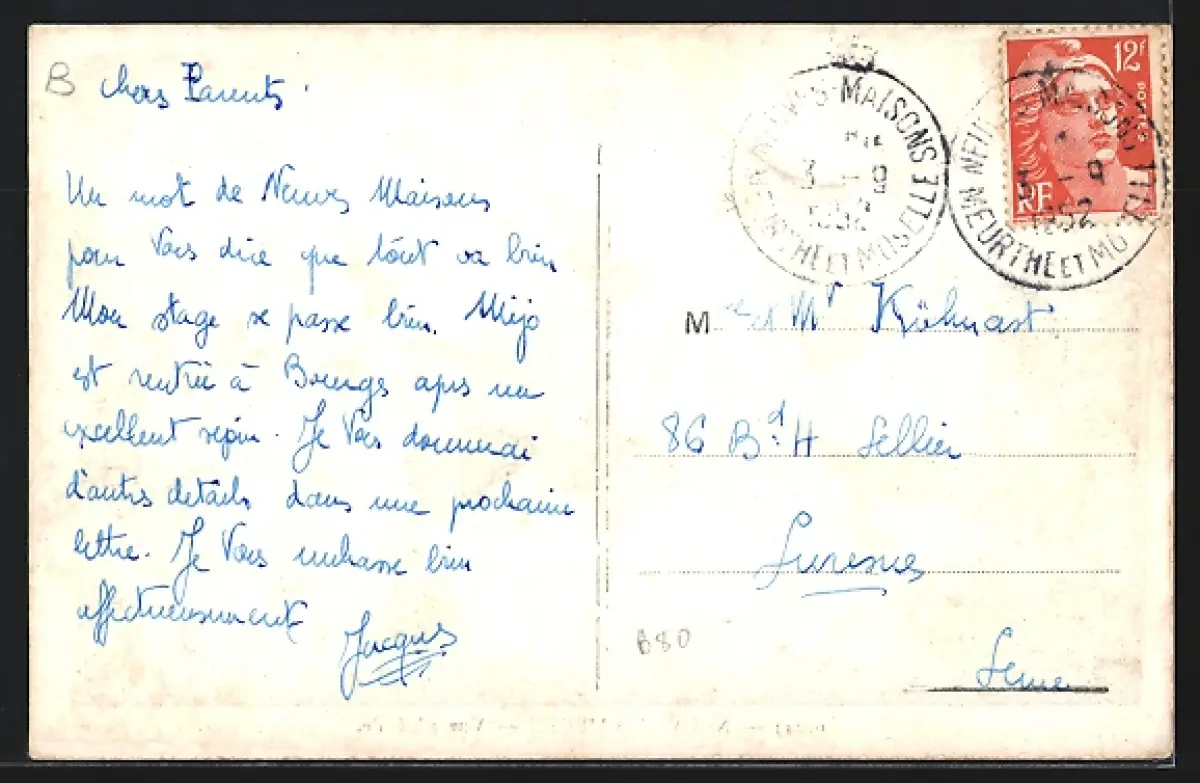 B
Chers Parents.
Un mot de Neuves Maisons
pour Vous dire que tout va bien
Mon stage se passe bien. Mijo
est rentrée à Bruges après un
excellent séjour. Je Vous donnerai
d'autres détails dans une prochaine
lettre. Je Vous embrasse bien
affectueusement
Jacques
NEUVES-MAISONS
3 - 9
1952
MEURTHE ET MOSELLE
12F
POSTES
RF
NEUVES-MAISONS
3 - 9
1952
MEURTHE ET MOSELLE
Mme et Mr Kühnast
86 Bd H Sellier
Suresnes
Seine
B80